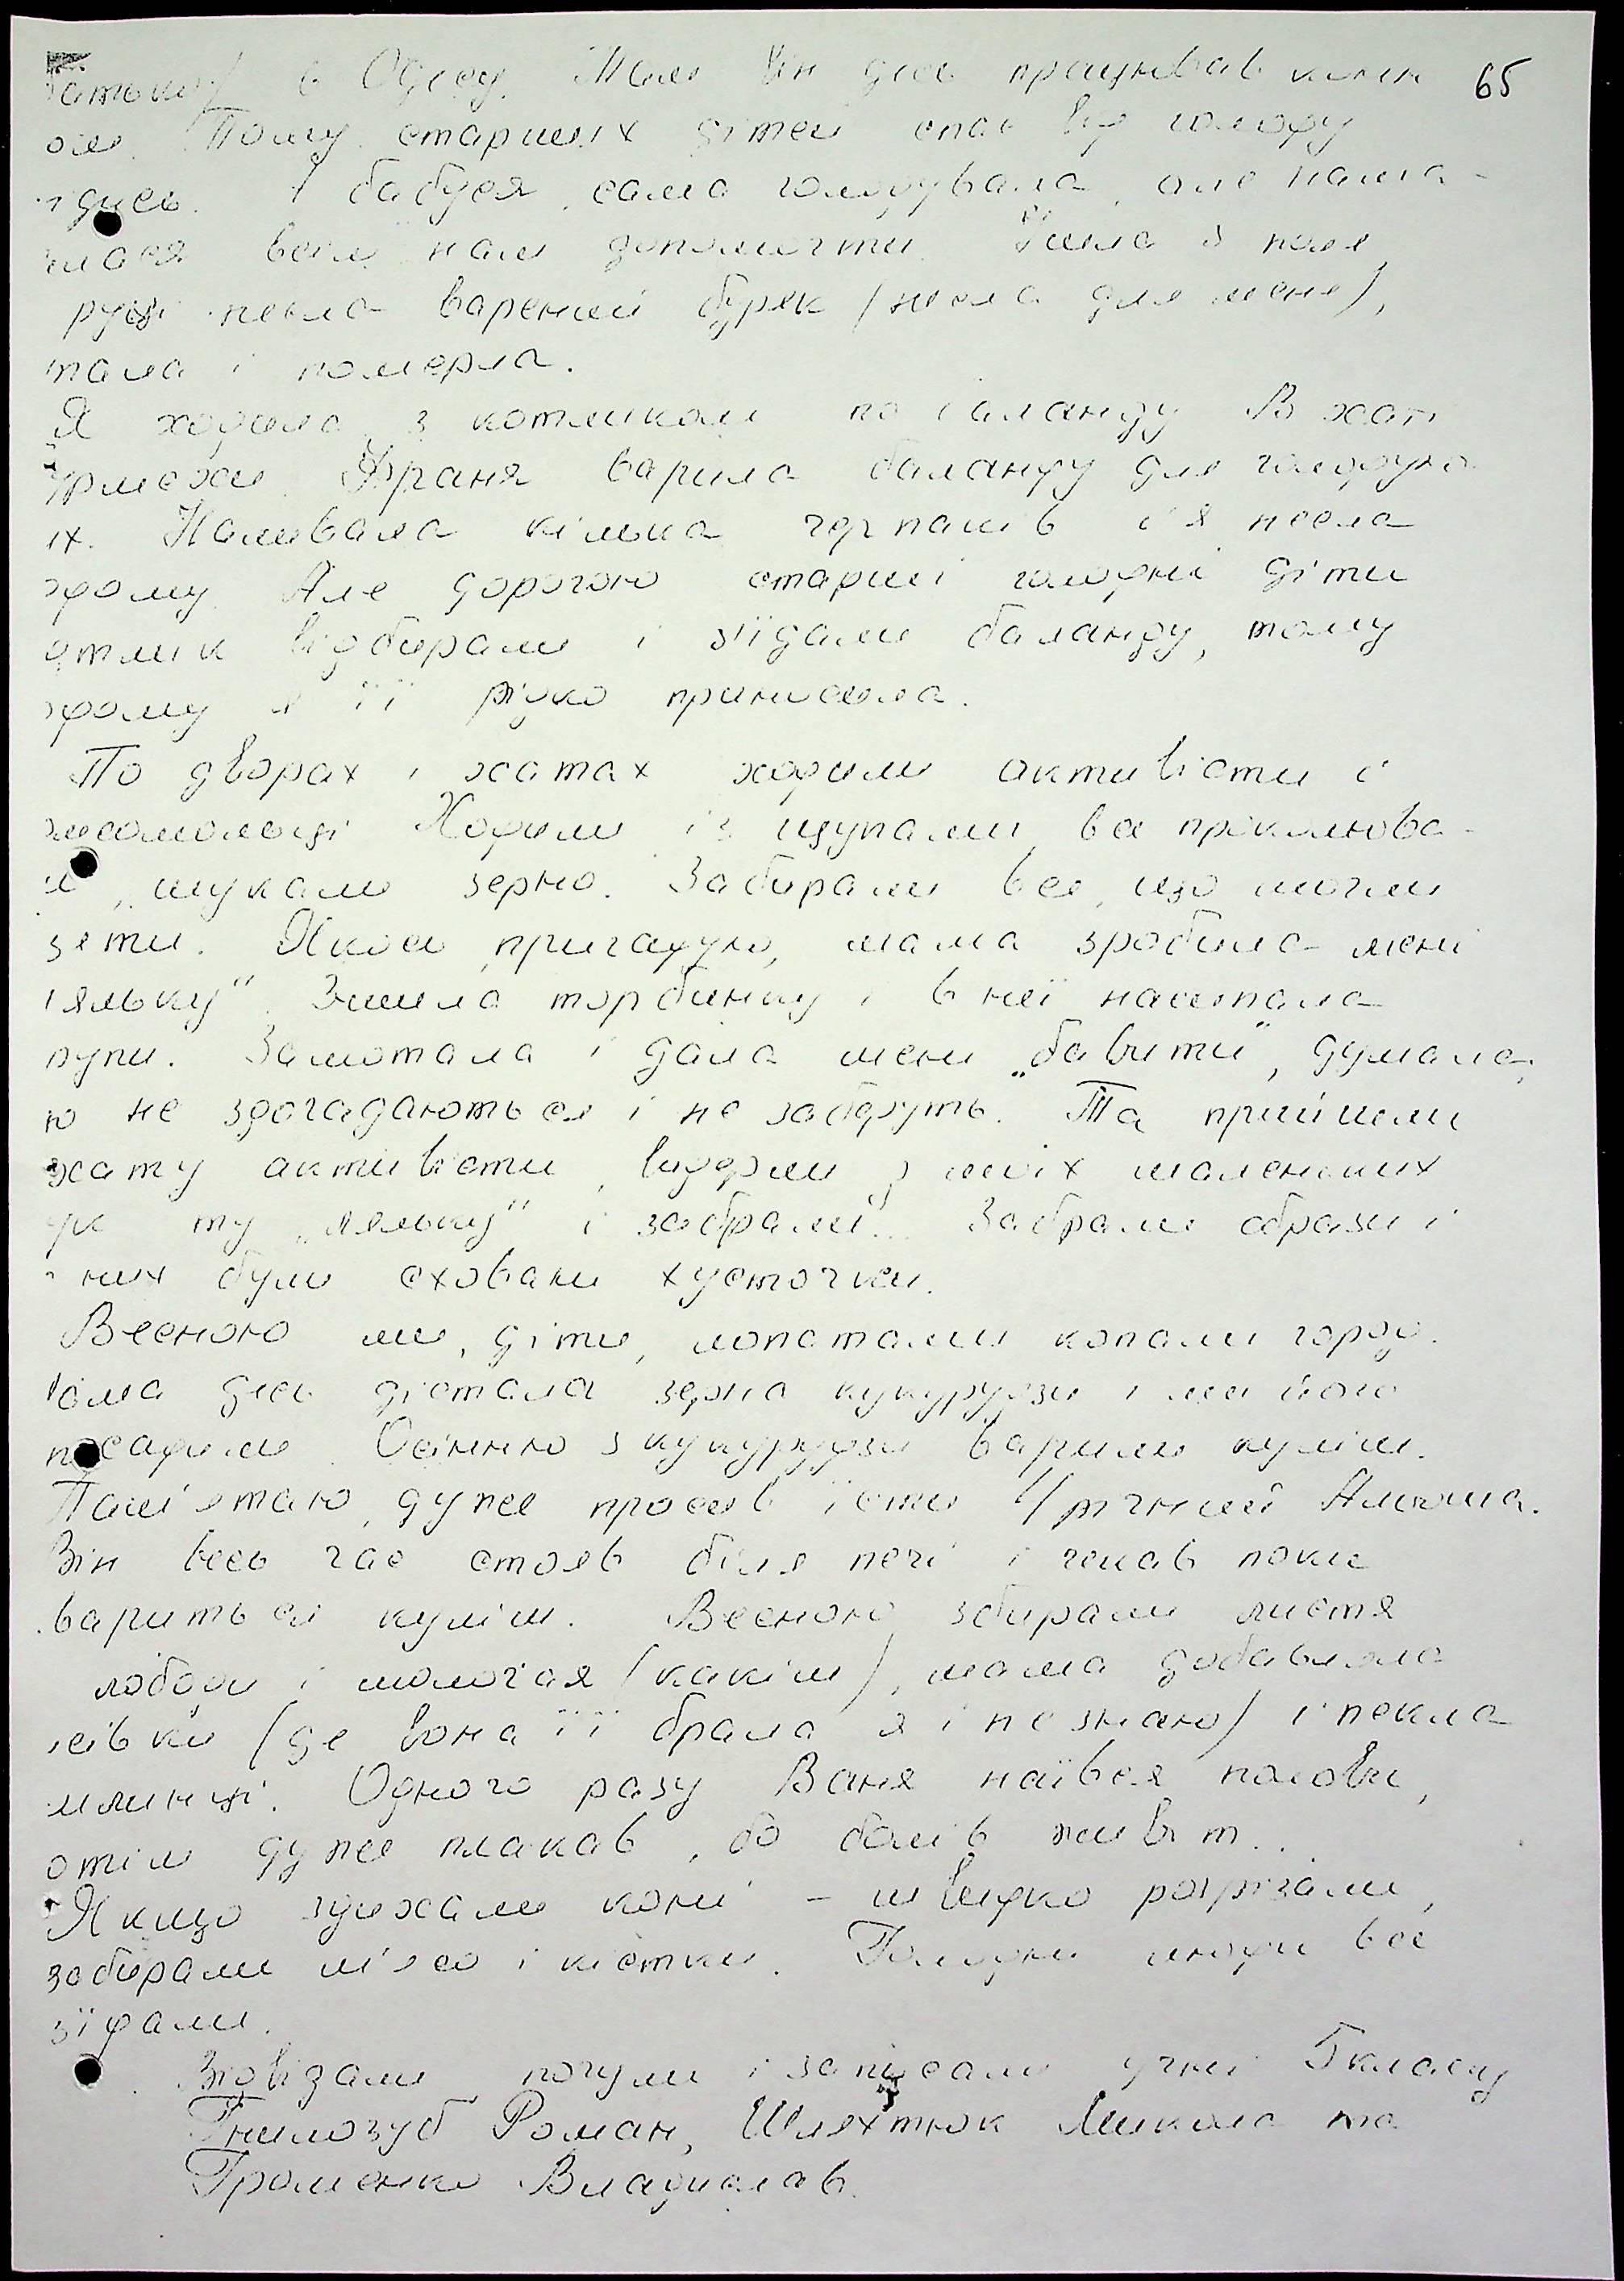 в Одесу. Там він десь працював
65
Тому старших дітей спас від голоду
І бабуся сама голодувала, але нама-
всім нам допомогти. Йшла з поля,
руці несла варений буряк (несла для мене),
і померла.
Я ходила з котликом по баланду. В хаті
Франя варила баланду для
их. Наливала кілька черпаків і я несла
Але дорогою старші голодні діти
відбирали і з'їдали баланду, тому
я її рідко приносила.
По дворах і хатах ходили активісти і
Ходили із щупами, все проколюва-
шукали зерно. Забирали все, що могли
зяти. Якось, пригадую, мама зробила мені
ляльку". Зшила торбинку і в неї насипала
крупи. Замотала і дала мені „бавити", думала,
що не здогадаються і не заберуть. Та прийшли
хату активісти, видерли з моїх маленьких
рук ту „ляльку" і забрали... Забрали образи і
них були сховані хусточки.
Весною ми, діти, лопатами копали город.
Мама десь дістала зерна кукурудзи і ми його
посадили. Осінню з кукурудзи варили куліш.
Пам'ятаю, дуже просив їсти Альоша.
Він весь час стояв біля печі і чекав поки
вариться куліш. Весною збирали листя
лободи і молочая (какіш), мама добавляла
(де вона її брала я і не знаю) і пекла
млинці. Одного разу Ваня наївся полови,
потім дуже плакав, бо болів живіт...
Якщо здихали коні - швидко розрізали,
забирали м'ясо і кістки. Голодні люди все
з'їдали.
Звідали, почули і записали учні 5 класу
Гнилозуб Роман, Шляхтюк Микола та
Громенко Владислав.